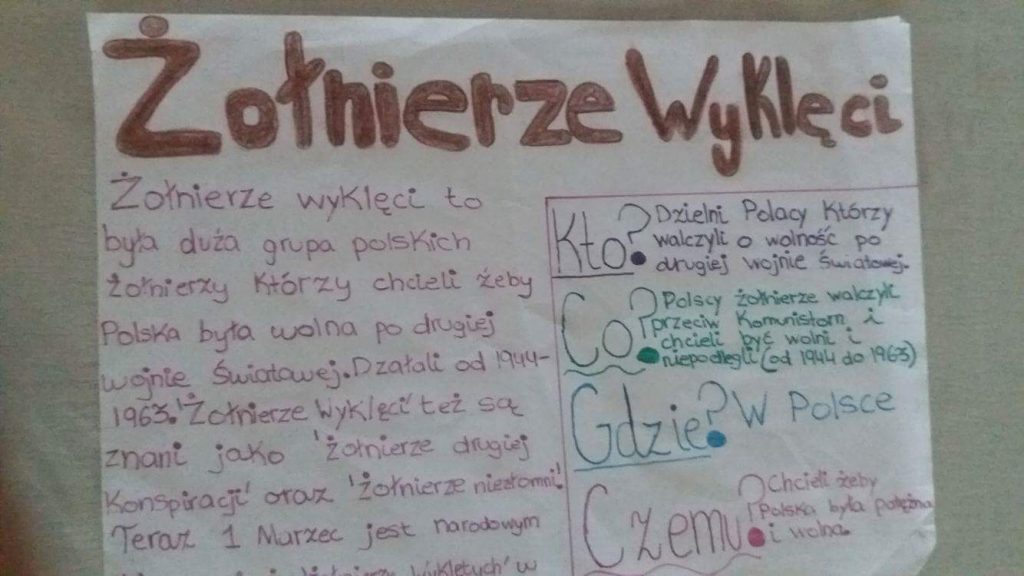 Żołnierze Wyklęci
Żołnierze wyklęci to
była duża grupa polskich
żołnierzy którzy chcieli żeby
Polska była wolna po drugiej
wojnie Światowej. Dzałali od 1944-
1963. 'Żołnierze Wyklęci' też są
znani jako 'żołnierze drugiej
Konspiracji' oraz 'żołnierze niezłomni'.
Teraz 1 Marzec jest narodowym
wyklętych' w
Kto?
Dzielni Polacy Którzy
walczyli o wolność po
drugiej wojnie Światowej.
Co?
Polscy żołnierze walczyli
przeciw Komunistom i
chcieli być wolni i
niepodlegli (od 1944 do 1963)
Gdzie? W Polsce
Czemu?
Chcieli żeby
Polska była potężna
i wolna.